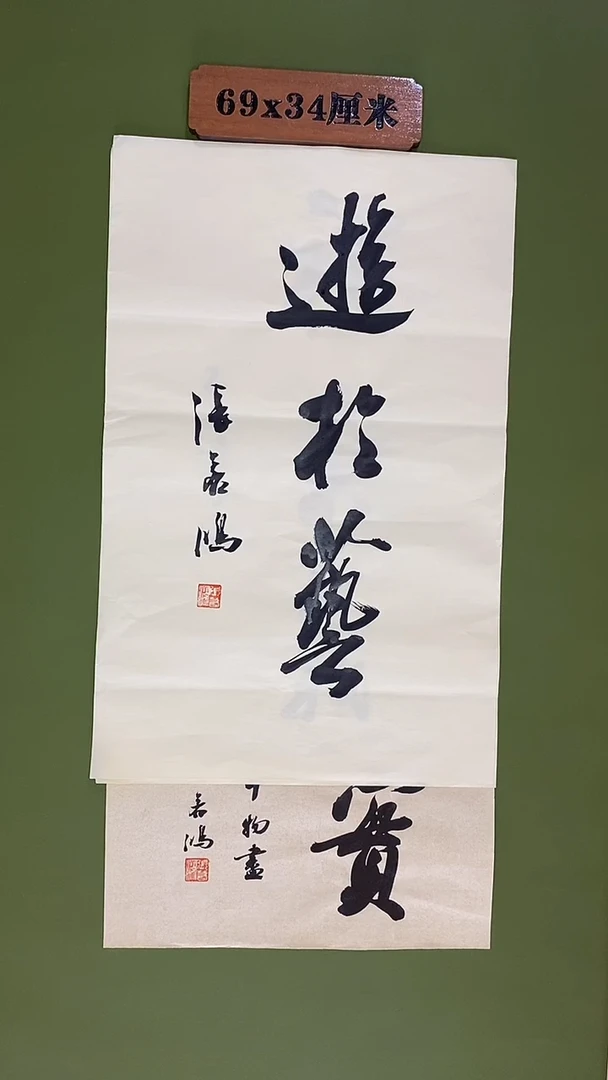 69x34厘米
遊於藝
張若鴻
貫
物畫
若鴻